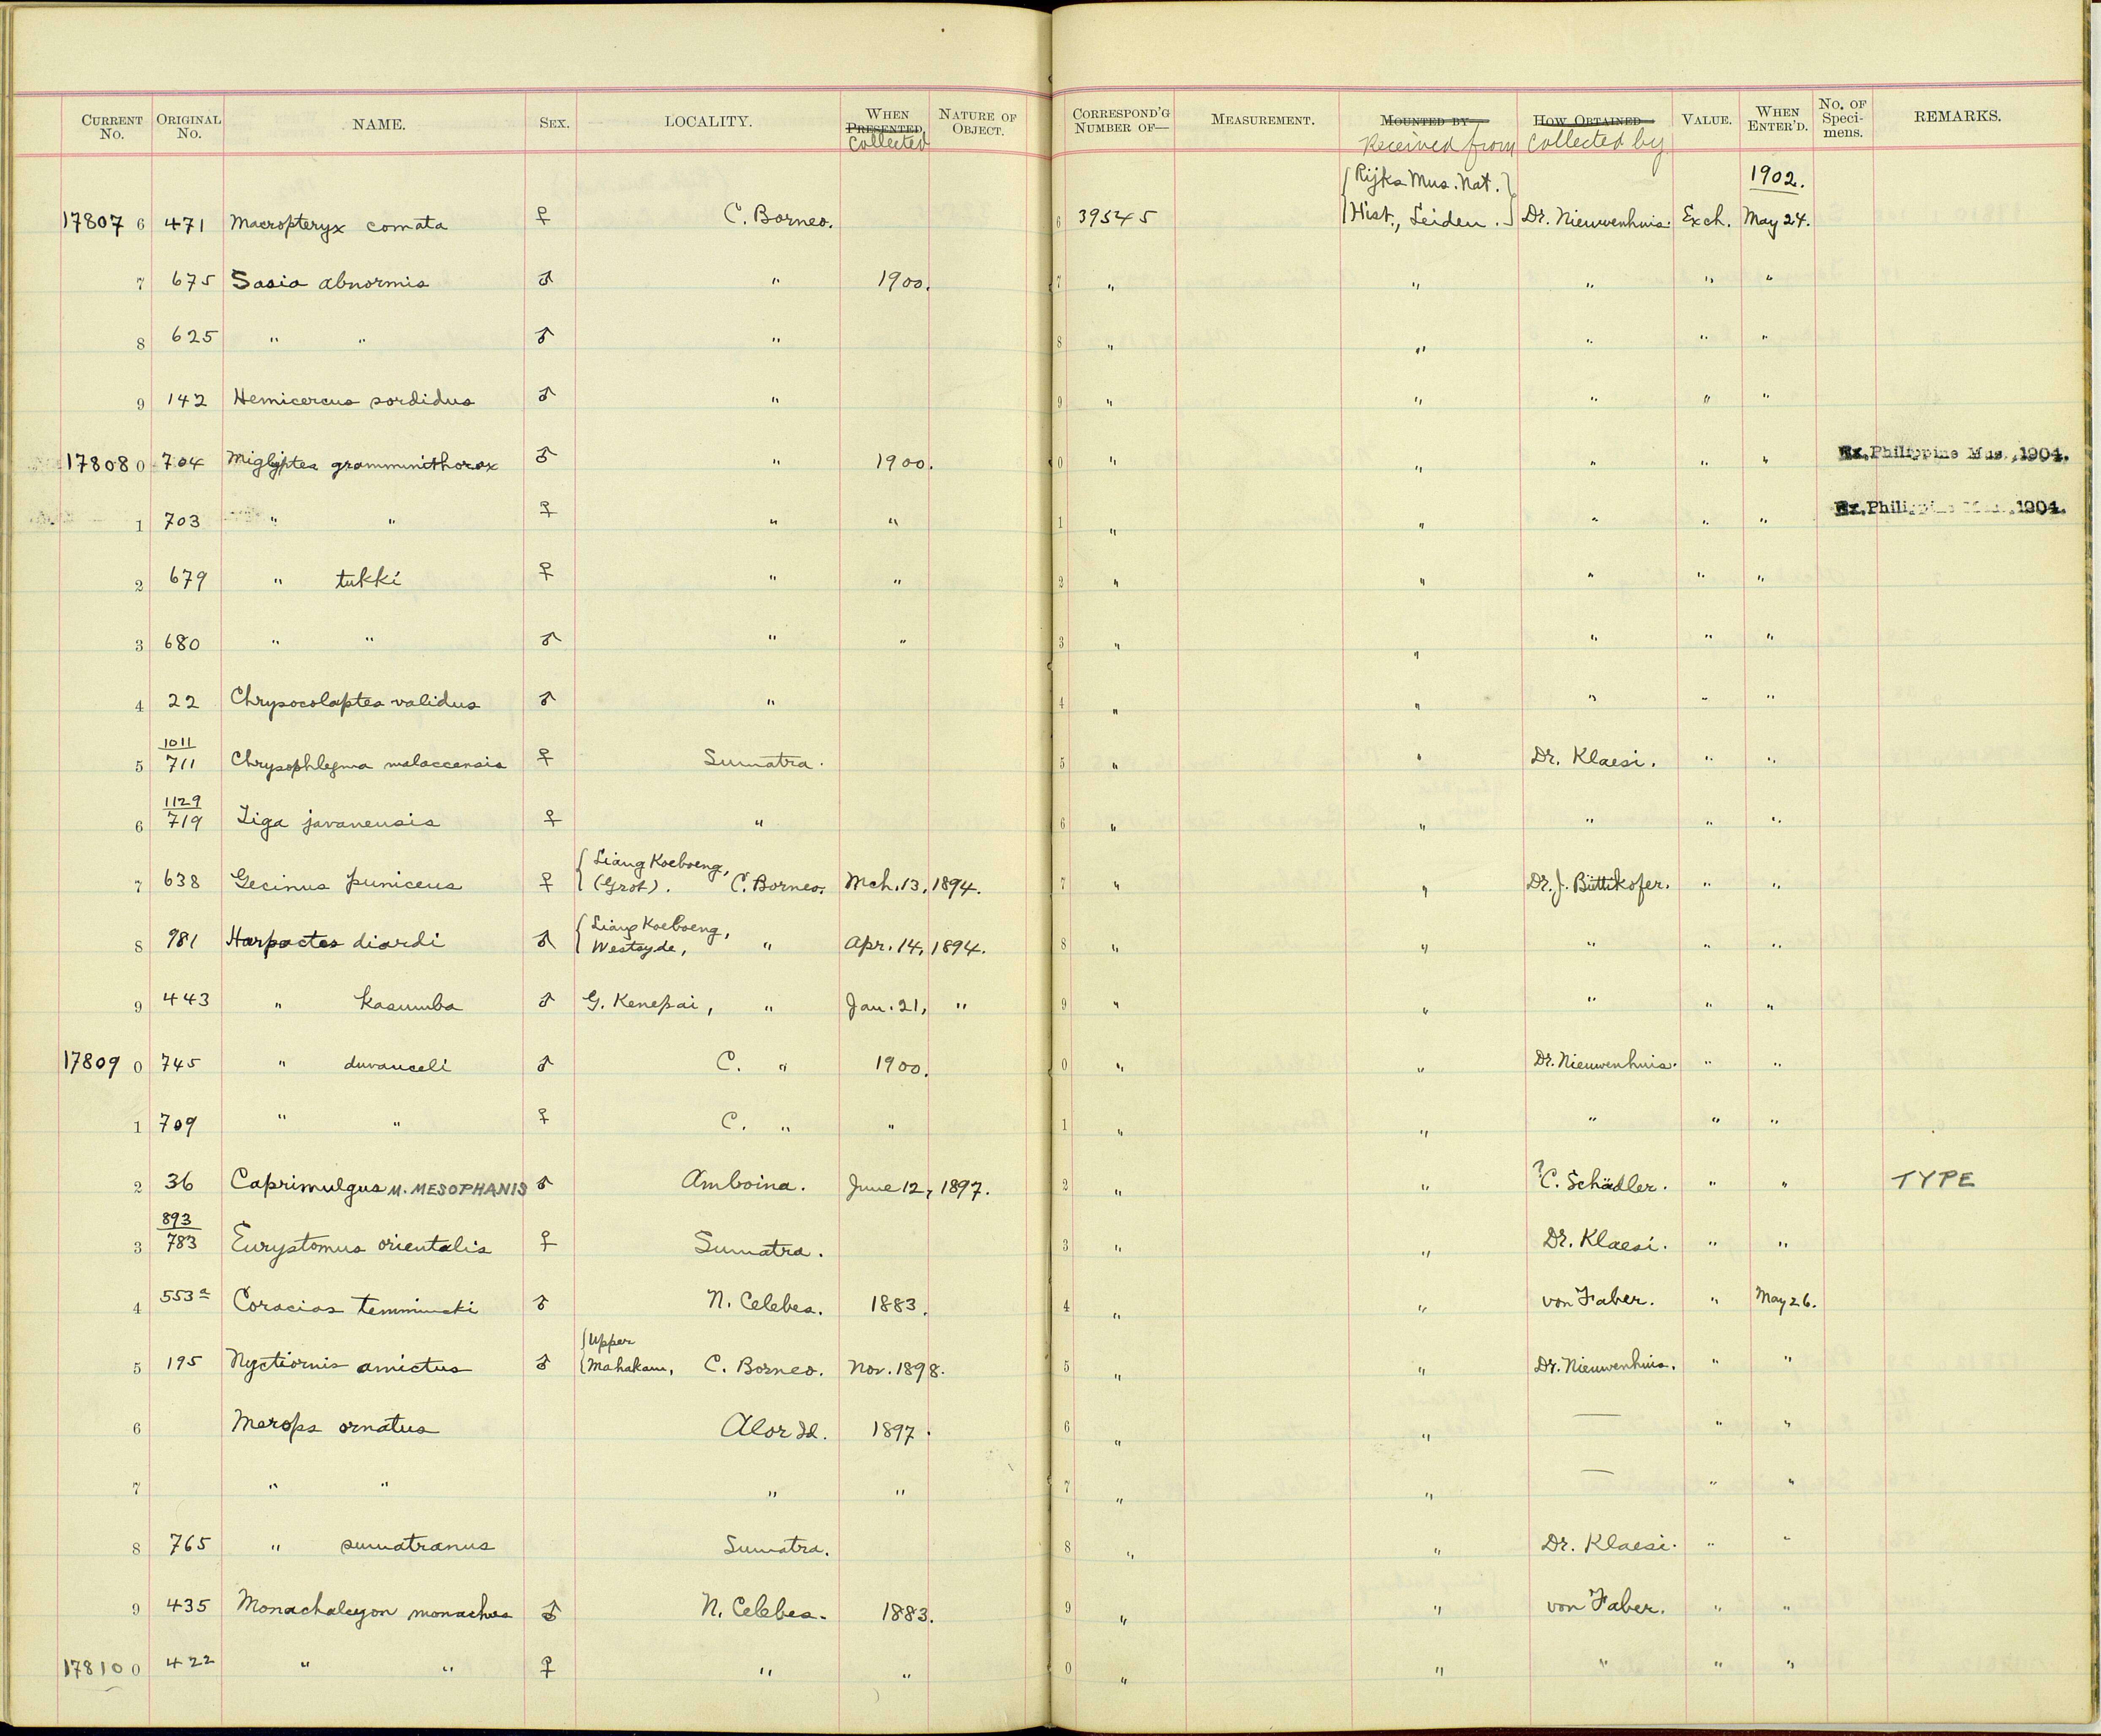 CURRENT No. ORIGINAL No. NAME. SEX. LOCALITY. WHEN PRESENTED Collected NATURE OF OBJECT. CORRESPOND'G NUMBER OF— MEASUREMENT. MOUNTED BY— Received from HOW OBTAINED Collected by VALUE. WHEN ENTER'D. No. OF Specimens. REMARKS.
{Rijks Mus. Nat.} 1902.
17807 6 471 Macropteryx comata ♀ C. Borneo. 6 39545 {Hist., Leiden.} Dr. Nieuwenhuis. Exch. May 24.
7 675 Sasia abnormis ♂ " 1900. 7 " " " " "
8 625 " " ♂ " 8 " " " " "
9 142 Hemicercus sordidus ♂ " 9 " " " " "
17808 0 704 Miglyptes gramminithorax ♂ " 1900. 0 " " " " " Ex. Philippine Mus., 1904.
1 703 " " ♀ " " 1 " " " " " Ex. Philippine Mus., 1904.
2 679 " tukki ♀ " " 2 " " " " "
3 680 " " ♂ " " 3 " " " " "
4 22 Chrysocolaptes validus ♂ " 4 " " " " "
1011
5 711 Chrysophlegma malaccensis ♀ Sumatra. 5 " " Dr. Klaesi. " "
1129
6 719 Tiga javanensis ♀ " 6 " " " " "
{Liang Koeboeng,
7 638 Gecinus puniceus ♀ (Grot). C. Borneo. Mch. 13, 1894. 7 " " Dr. J. Büttikofer. " "
{Liang Koeboeng,
8 981 Harpactes diardi ♂ Westzyde, " Apr. 14, 1894. 8 " " " " "
9 443 " kasumba ♂ G. Kenepai, " Jan. 21, " 9 " " " " "
17809 0 745 " duvauceli ♂ C. " 1900. 0 " " Dr. Nieuwenhuis. " "
1 709 " " ♀ C. " " 1 " " " " "
2 36 Caprimulgus M. MESOPHANIS ♂ Amboina. June 12, 1897. 2 " " ? C. Schädler. " " TYPE
893
3 783 Eurystomus orientalis ♀ Sumatra. 3 " " Dr. Klaesi. " "
4 553a Coracias temmincki ♂ N. Celebes. 1883. 4 " " von Faber. " May 26.
{Upper
5 195 Nyctiornis amictus ♂ {Mahakam, C. Borneo. Nov. 1898. 5 " " Dr. Nieuwenhuis. " "
6 Merops ornatus Alor Id. 1897. 6 " " — " "
7 " " " " 7 " " — " "
8 765 " sumatranus Sumatra. 8 " " Dr. Klaesi. " "
9 435 Monachalcyon monachus ♂ N. Celebes. 1883. 9 " " von Faber. " "
17810 0 422 " " ♀ " " 0 " " " " "